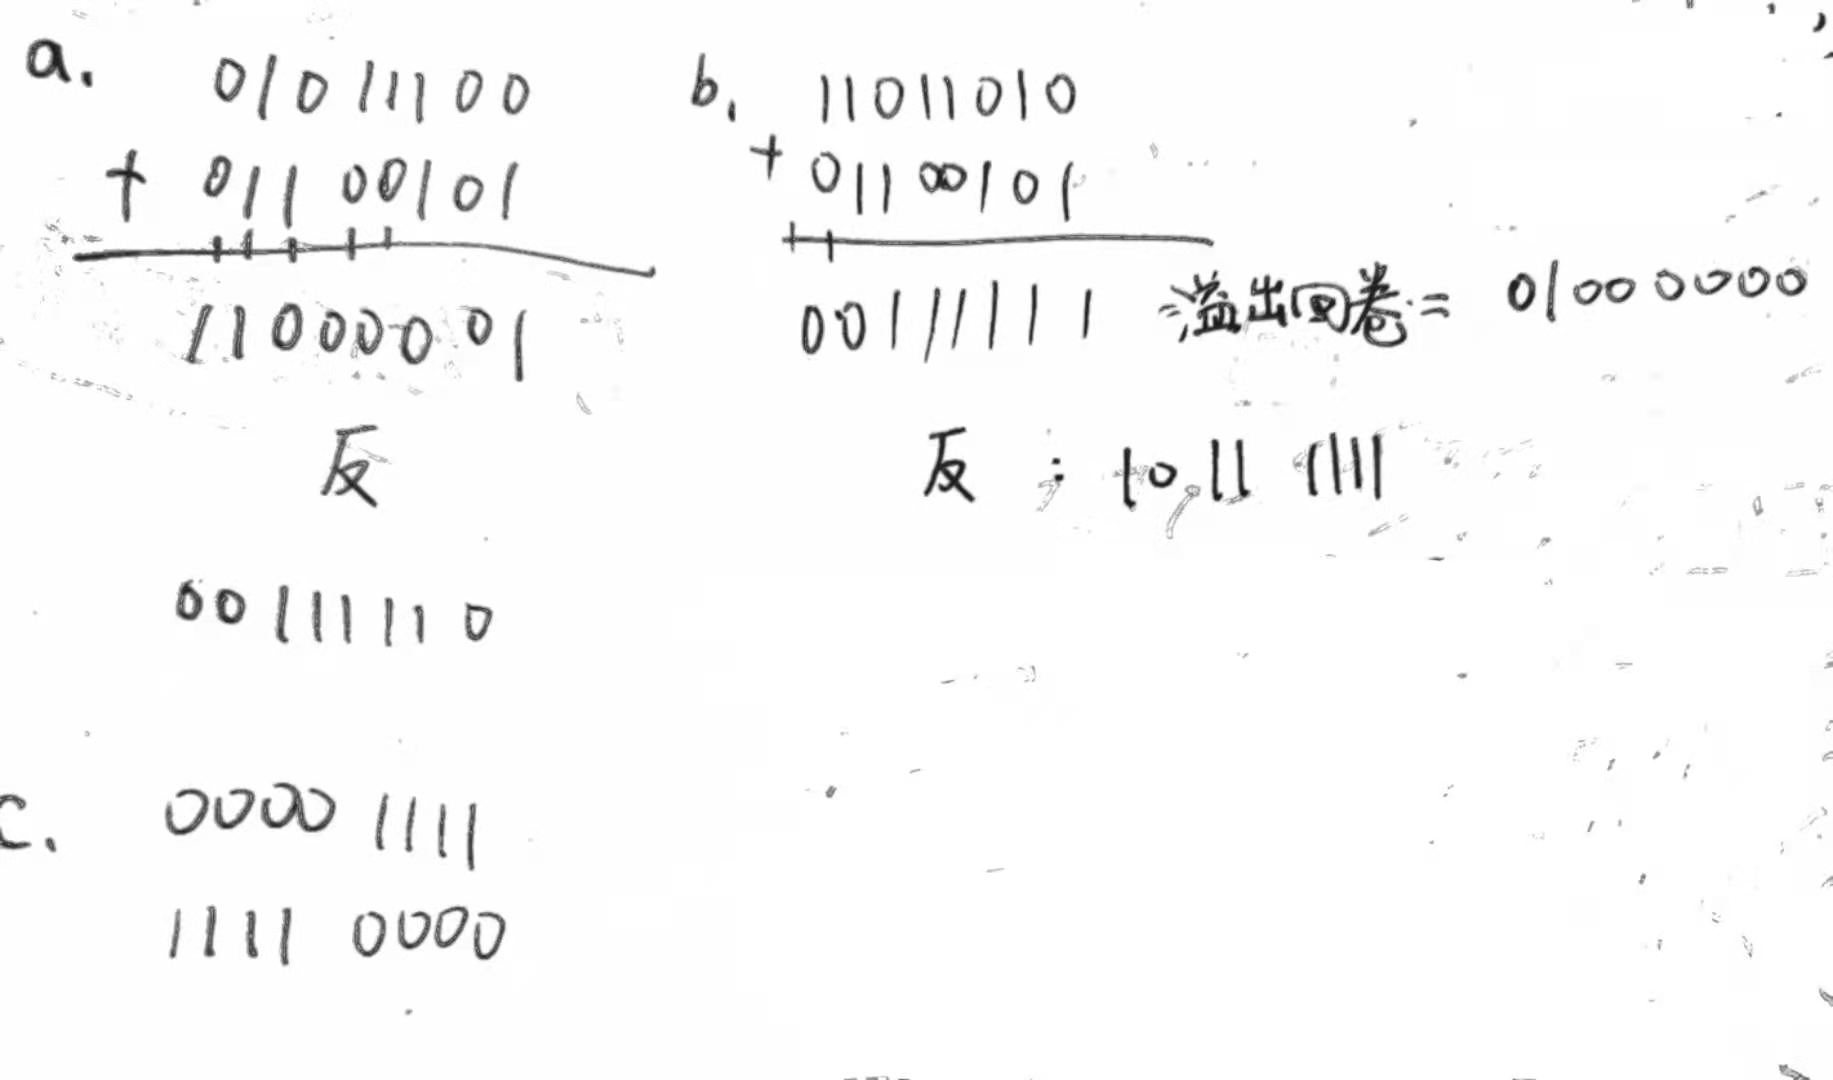 a. 01011100
+ 01100101
11000001
反
00111110
b. 11011010
+ 01100101
00111111 溢出回卷 = 01000000
反: 10111111
c. 00001111
11110000